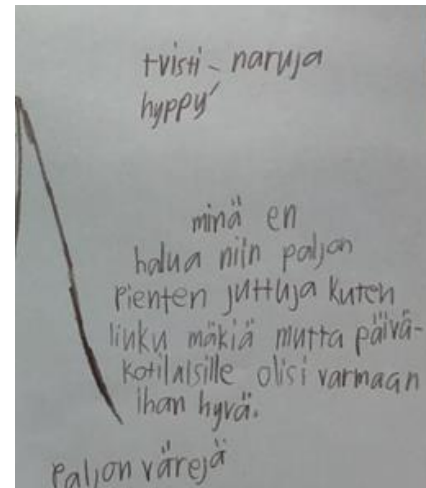 tvisti- naruja
hyppy
minä en
halua niin paljon
pienten juttuja kuten
liuku mäkiä mutta päivä-
kotilaisille olisi varmaan
ihan hyvä.
paljon värejä